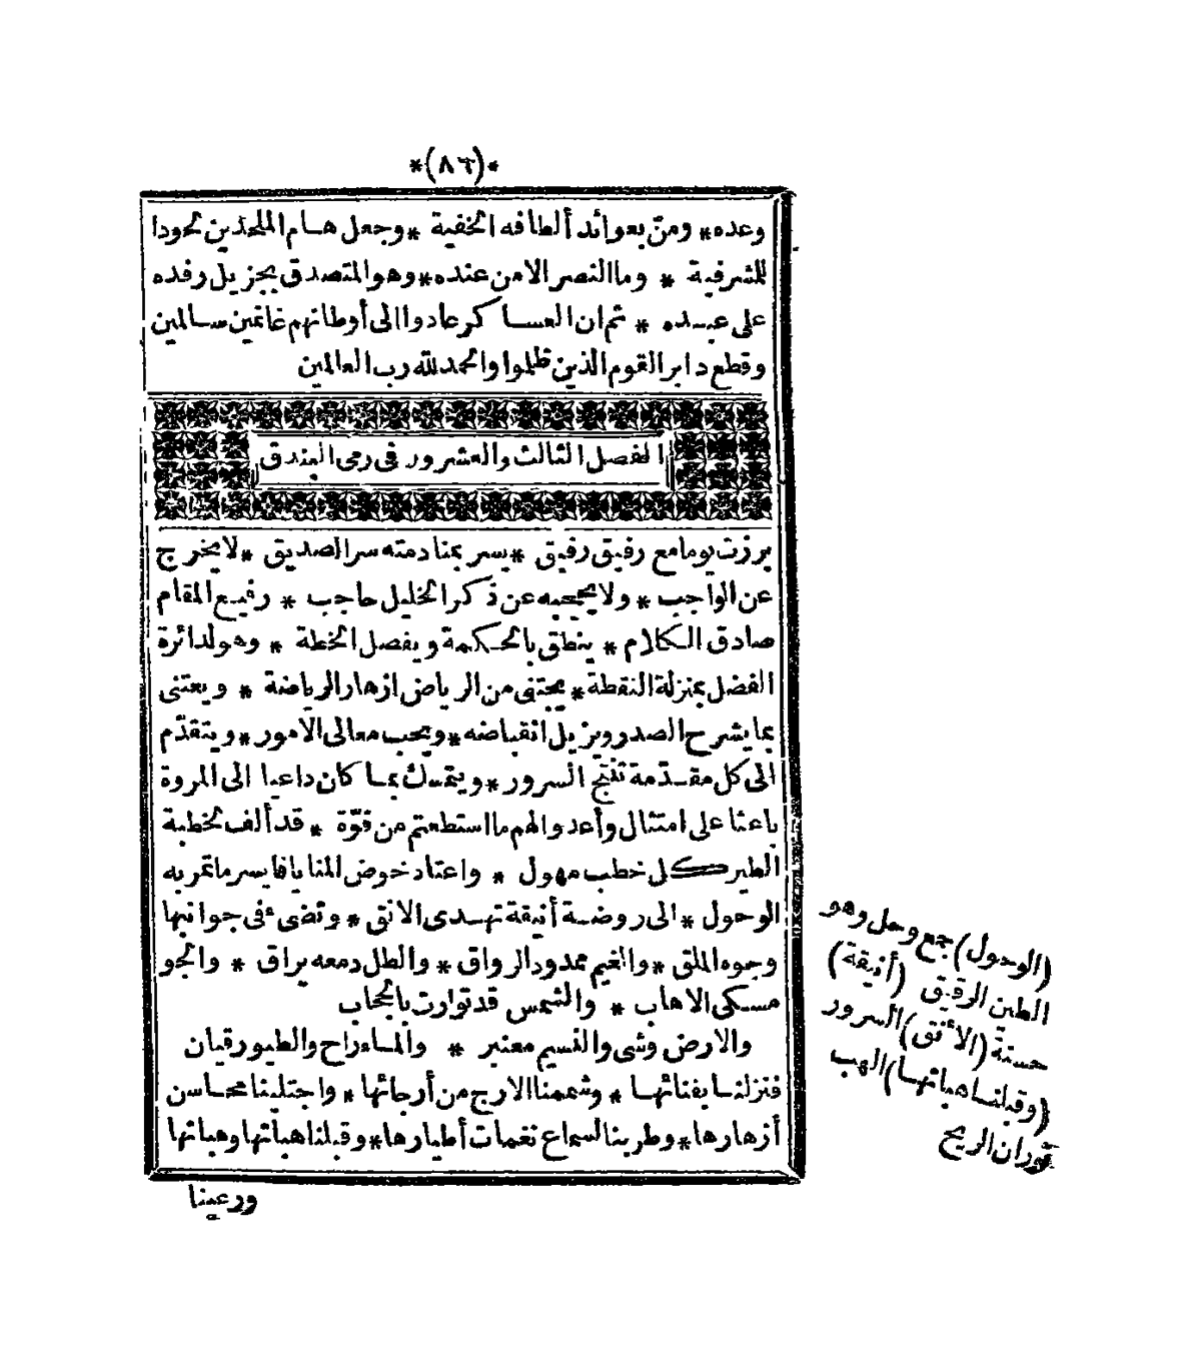 *(٨٦)*
وعده* ومنّ بعوائد ألطافه الخفية *وجعل هام الملحدين غمودا
للمشرفية * وما النصر الا من عنده*وهو المتصدق بجزيل رفده
على عبيده * ثم ان العساكر عادوا الى أوطانهم غانمين سالمين
وقطع دابر القوم الذين ظلموا والحمد لله رب العالمين
الفصل الثالث والعشرور فى رمى البندق
برزت يوما مع رفيق رفيق *يسر بمنادمته سر الصديق *لا يخرج
عن الواجب* ولا يحجبه عن ذكر الخليل حاجب * رفيع المقام
صادق الكلام * ينطق بالحكمة ويفصل الخطة * وهو لدائرة
الفضل بمنزلة النقطة* يجتنى من الرياض ازهار الرياضة * ويعتنى
بما يشرح الصدر ويزيل انقباضه*ويحب معالى الامور*ويتقدّم
الى كل مقدّمة تنتج السرور*ويتمسك بما كان داعيا الى المروة
باعثا على امتثال وأعدوا لهم ما استطعتم من قوّة * قد ألف لخطبة
الطير كل خطب مهول * واعتاد خوض المنايا فايسر ما تمر به
الوحول* الى روضة أنيقة تهدى الانق* وتضىء فى جوانبها
وجوه الملق *والغيم ممدود الرواق* والطل دمعه يراق * والجو
مسكى الاهاب * والشمس قد توارت بالحجاب
والارض وشى والنسيم معنبر * والماء راح والطيور قيان
فنزلنا بفنائها * وشممنا الارج من أرجائها * واجتلينا محاسن
أزهارها*وطربنا لسماع نغمات أطيارها*وقبلنا هباتها وهباتها
ورعينا
(الوحول) جمع وحل وهو
الطين الرقيق (أنيقة)
حسنة (الأنق) السرور
(وقبلنا هباتها) الهب
ثوران الريح